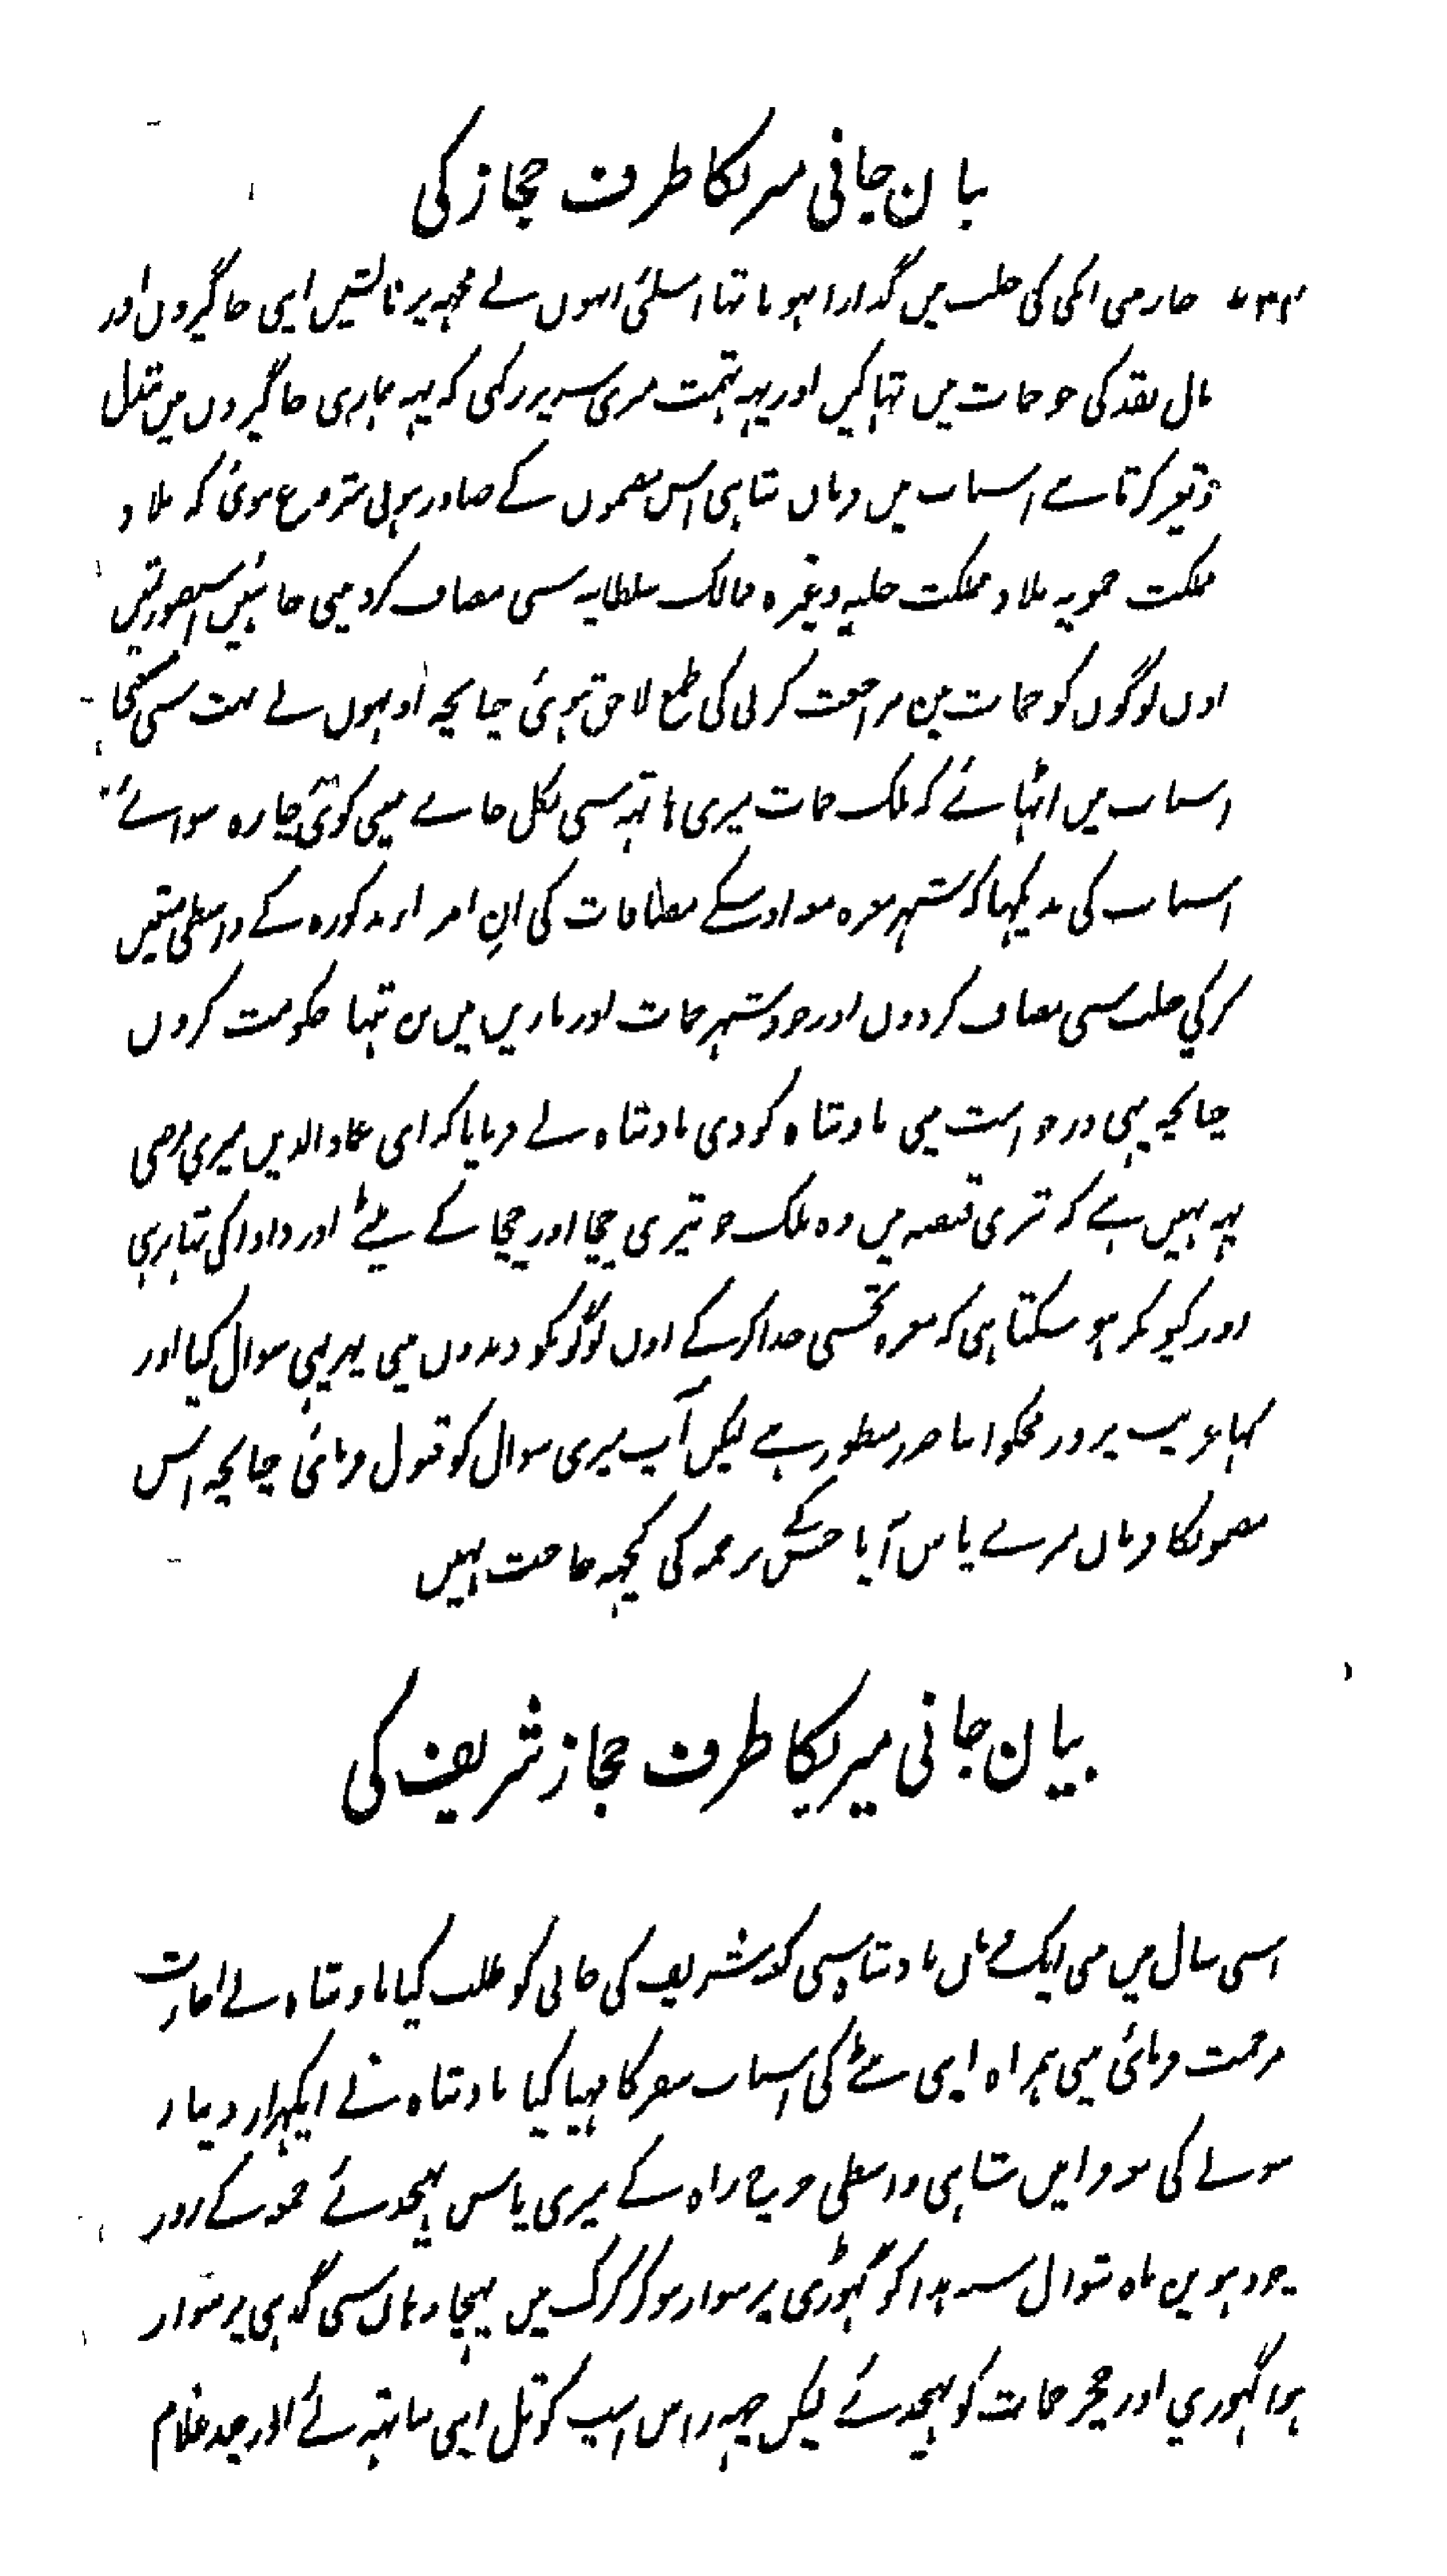 بیان جانی میریکا طرف حجاز کی
۷۳۳ خارمی اکمی کی حلب میں گذارا ہوتا تہا اسلئی انہوں نے مجہہ پر نالشیں اپنی جاگیروں اور
مال نقد کی جو حمات میں تہا کیں اور یہہ تہمت میری سر پر رکہی کہ یہہ ہماری جاگیروں میں خلل
و تغیر کرتا ہے اسباب میں فرمان شاہی اس مضمون کے صادر ہونی شروع ہوئی کہ بلاد
مملکت حمویہ بلاد مملکت حلبیہ وغیرہ ممالک سلطانیہ سی مضاف کر دیئی جائیں اسصورتمیں
اون لوگوں کو حمات میں مراجعت کرنی کی طمع لاحق ہوئی چنانچہ اونہوں نے بہت سی سختیاں
اسباب میں اٹہائے کہ ملک حمات میری ہاتہہ سی نکل جاے مینی کوئی چارہ سوائے
اسباب کی نہ دیکہا کہ شہر معرہ معہ اوسکے مضافات کی ان امراء مذکورہ کے واسطی متعین
کرکی حلب سی مضاف کر دوں اور خود شہر حمات اور بارین میں تن تنہا حکومت کروں
چنانچہ یہی درخواست مینی بادشاہ کو دی بادشاہ نے فرمایا کہ ای عماد الدین میری مرضی
یہہ نہیں ہے کہ تیری قبضہ میں وہ ملک جو تیری چچا اور چچا کے بیٹے اور دادا کی تہا نرہی
اور کیونکر ہو سکتا ہی کہ معرہ تجہسی جدا کرکے اون لوگونکو دیدوں مینی پہر یہی سوال کیا اور
کہا غریب پرور مجکو اپنا ضرر منظور ہے لیکن آپ میری سوال کو قبول فرمائی چنانچہ اس
مضمونکا فرمان میرے پاس آیا جسکے ترجمہ کی کچہہ حاجت نہیں
بیان جانی میریکا طرف حجاز شریف کی
اسی سال میں مینی ایک فرمان بادشاہ سی کعبہ شریف کی جانی کو طلب کیا بادشاہ نے اجازت
مرحمت فرمائی مینی ہمراہ اپنی بیٹے کی اسباب سفر کا مہیا کیا بادشاہ نے ایکہزار دینار
سونے کی معہ فرامین شاہی واسطی خرچ راہ کے میری پاس بہیجدئے جمعہ کے روز
چودہوین ماہ شوال سنہ ہذا کو گہوڑی پر سوار ہوکر کرک میں پہنچا وہاں سی گدہی پر سوار
ہوا گہوڑی اور خچر حمات کو بہیجدئے لیکن چہہ راس اسپ کوتل اپنی ساتہہ لئے اور چند غلام